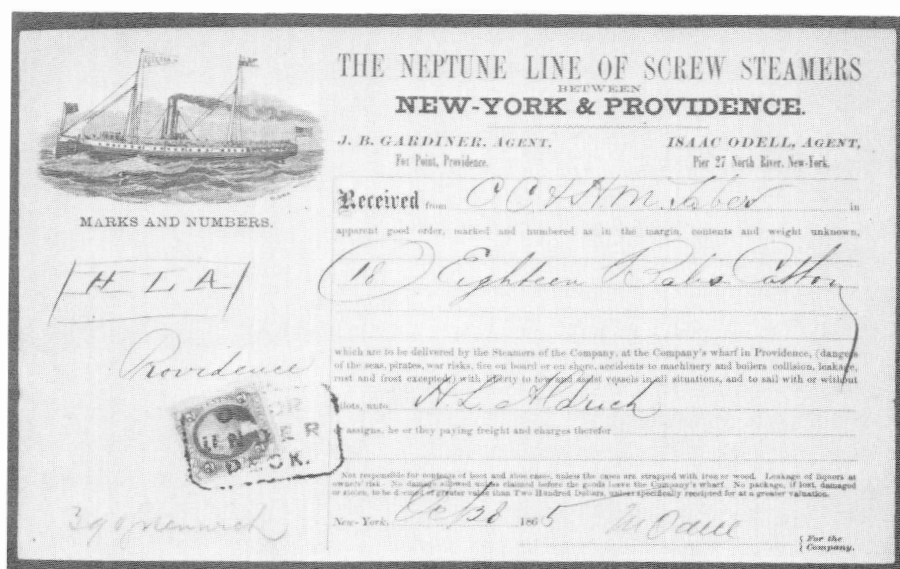 THE NEPTUNE LINE OF SCREW STEAMERS
BETWEEN
NEW-YORK & PROVIDENCE.
J. B. GARDINER, AGENT,
Fox Point, Providence.
ISAAC ODELL, AGENT,
Pier 27 North River, New-York.
MARKS AND NUMBERS.
Received from C C & H M. Taber in
apparent good order, marked and numbered as in the margin, contents and weight unknown,
H L A
(18) Eighteen Bales Cotton
Providence
which are to be delivered by the Steamers of the Company, at the Company's wharf in Providence, (dangers
of the seas, pirates, war risks, fire on board or on shore, accidents to machinery and boilers collision, leakage,
rust and frost excepted) with liberty to tow and assist vessels in all situations, and to sail with or without
pilots, unto H. L. Aldrich
or assigns, he or they paying freight and charges therefor
UNDER
DECK.
Not responsible for contents of boot and shoe cases, unless the cases are strapped with iron or wood. Leakage of liquors at
owners' risk. No damage allowed unless claimed before the goods leave the Company's wharf. No package, if lost, damaged
or stolen, to be deemed of greater value than Two Hundred Dollars, unless specifically receipted for at a greater valuation.
New-York, 1865
For the
Company.